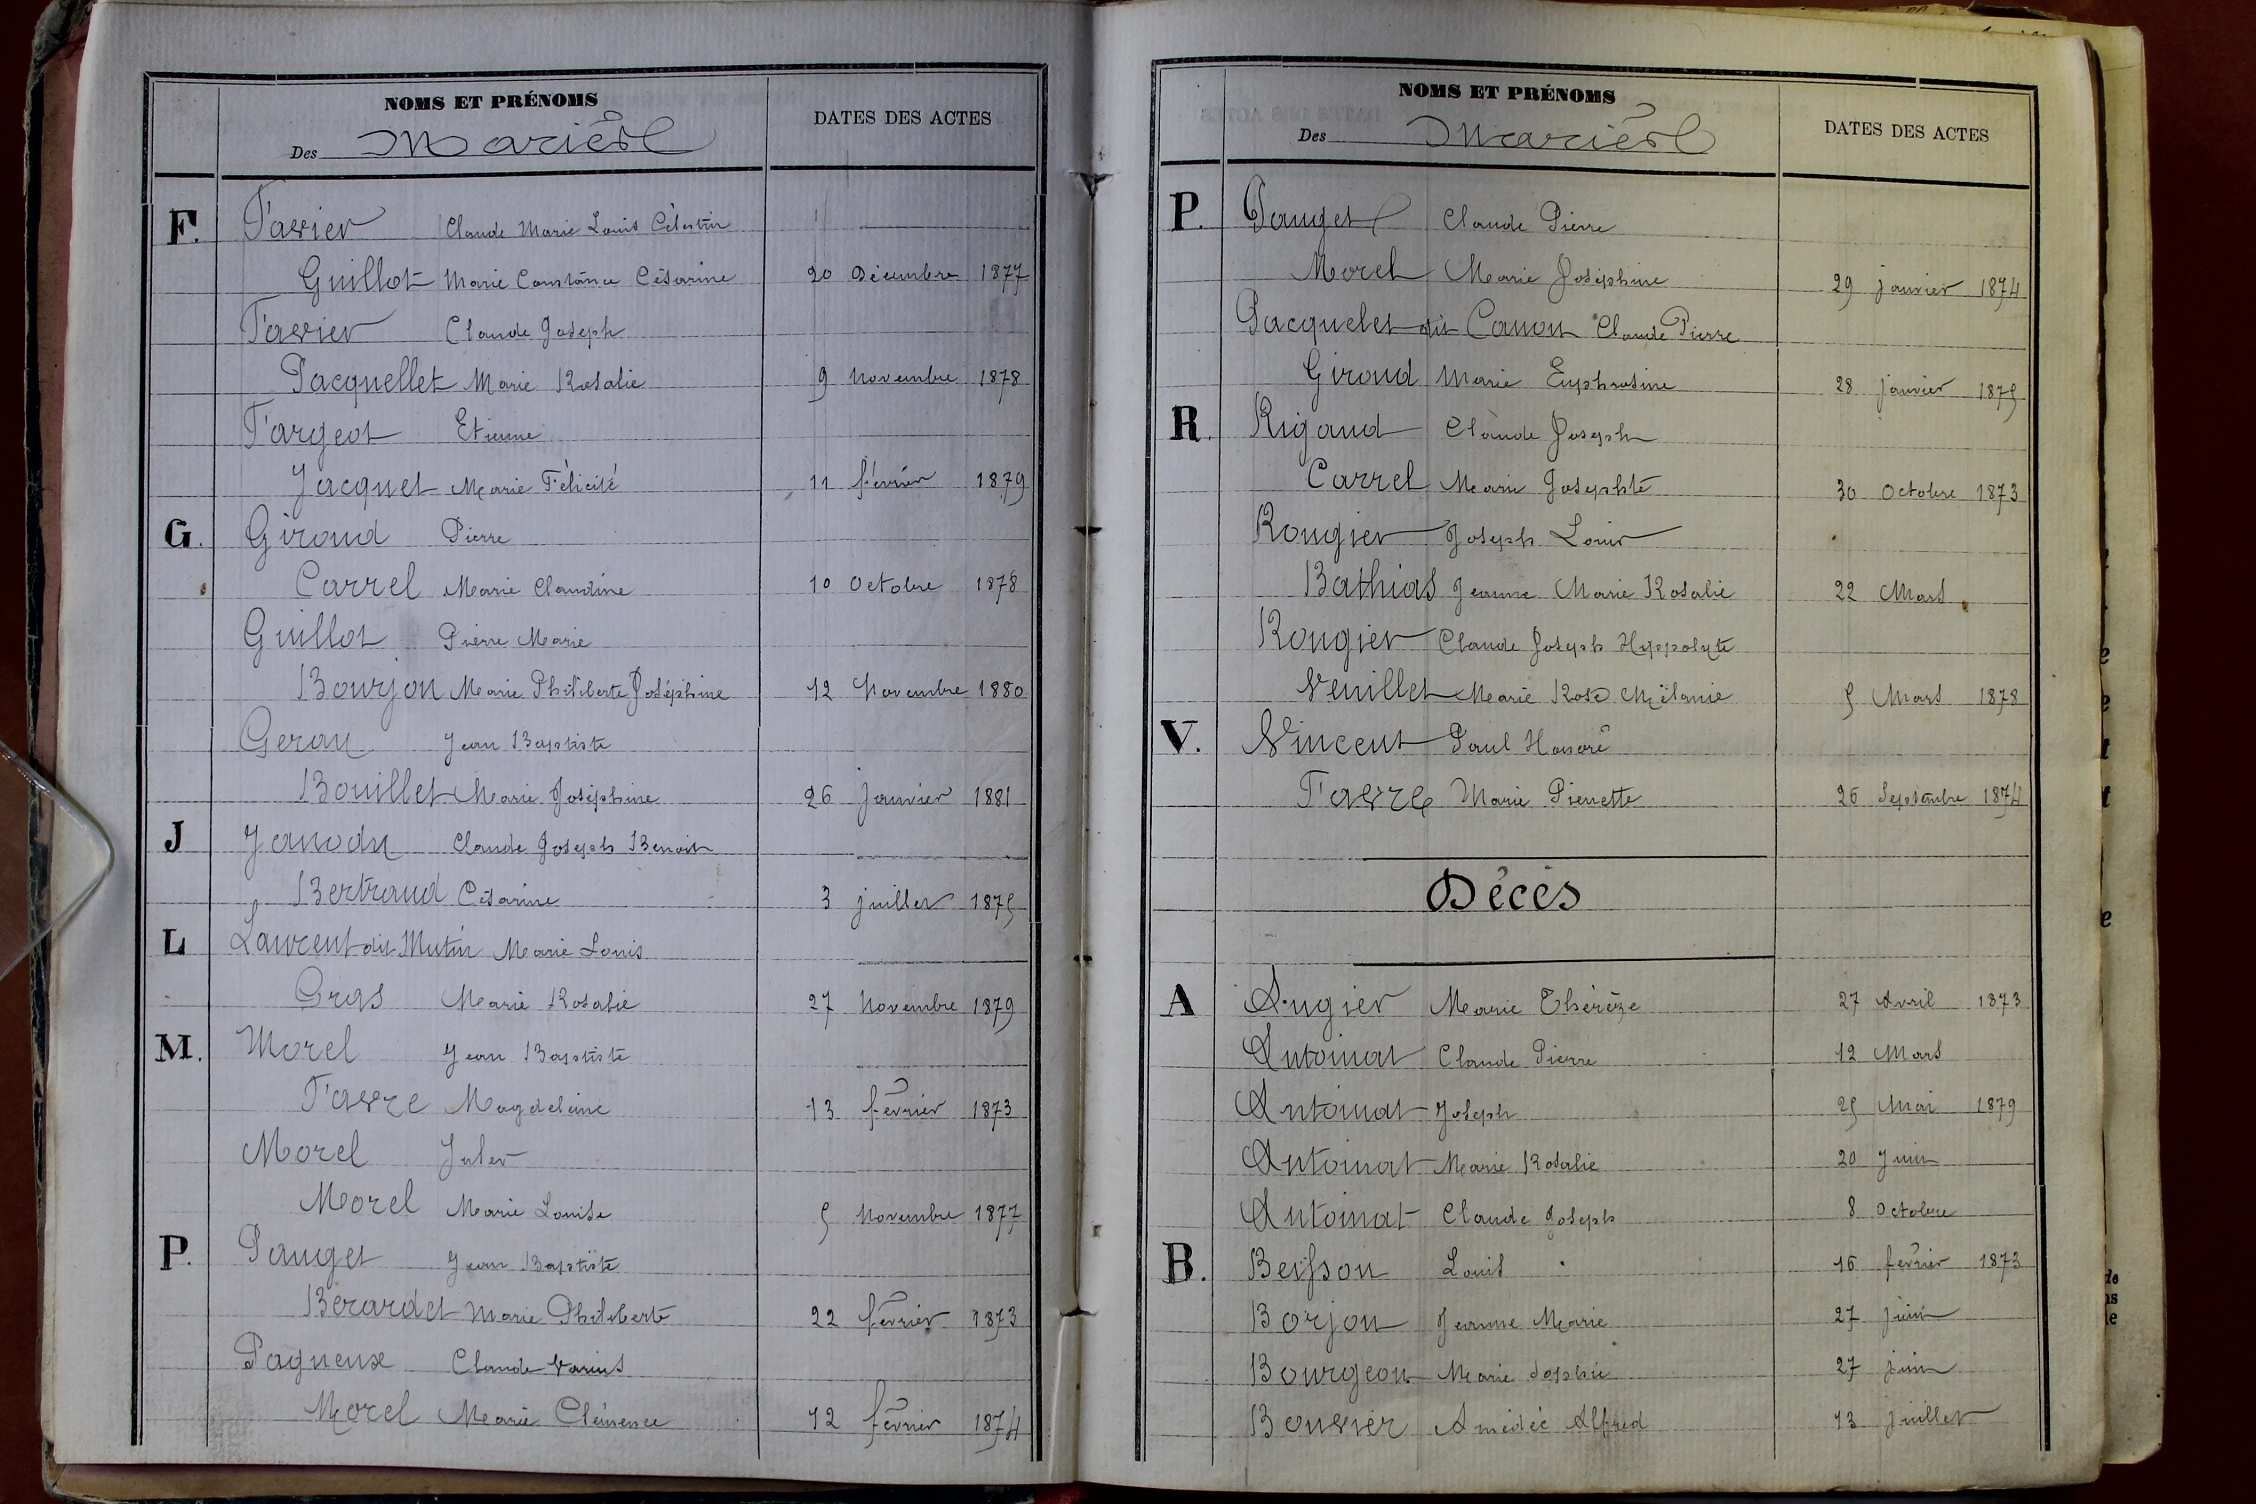 NOMS ET PRÉNOMS
Des Mariés
DATES DES ACTES
F. Favier Claude Marie Louis Célestin
Guillot Marie Constance Césarine 20 Décembre 1877
Favier Claude Joseph
Pacquellet Marie Rosalie 9 Novembre 1878
Fargeot Etienne
Jacquet Marie Félicité 11 février 1879
G. Giroud Pierre
Carrel Marie Claudine 10 Octobre 1878
Guillot Pierre Marie
Bourjon Marie Philiberte Joséphine 12 Novembre 1880
Geray Jean Baptiste
Bouillet Marie Joséphine 26 janvier 1881
J Janody Claude Joseph Benoit
Bertraud Césarine 3 juillet 1875
L Laurent dit Mutin Marie Louis
Gras Marie Rosalie 27 Novembre 1879
M. Morel Jean Baptiste
Favre Magdeleine 13 février 1873
Morel Jules
Morel Marie Louise 5 Novembre 1877
P. Pauget Jean Baptiste
Berardet Marie Philiberte 22 février 1873
Pagneux Claude Varius
Morel Marie Clémence 12 février 1874
NOMS ET PRÉNOMS
Des Mariés
DATES DES ACTES
P. Pauget Claude Pierre
Morel Marie Joséphine 29 janvier 1874
Pacquelet dit Canon Claude Pierre
Giroud Marie Euphrosine 28 janvier 1875
R. Rigaud Claude Joseph
Carrel Marie Josephte 30 Octobre 1873
Rougier Joseph Louis
Bathias Jeanne Marie Rosalie 22 Mars
Rougier Claude Joseph Hyppolyte
Veuillet Marie Rose Mélanie 5 Mars 1878
V. Vincent Paul Honoré
Favre Marie Pierrette 26 Septembre 1874
Décès
A Augier Marie Thérèze 27 Avril 1873
Antoinat Claude Pierre 12 Mars
Antoinat Joseph 25 Mai 1879
Antoinat Marie Rosalie 20 Juin
Antoinat Claude Joseph 8 Octobre
B. Beisson Louis 16 février 1873
Borjon Jeanne Marie 27 juin
Bourgeon Marie Sophie 27 juin
Bouvier Amédée Alfred 13 Juillet